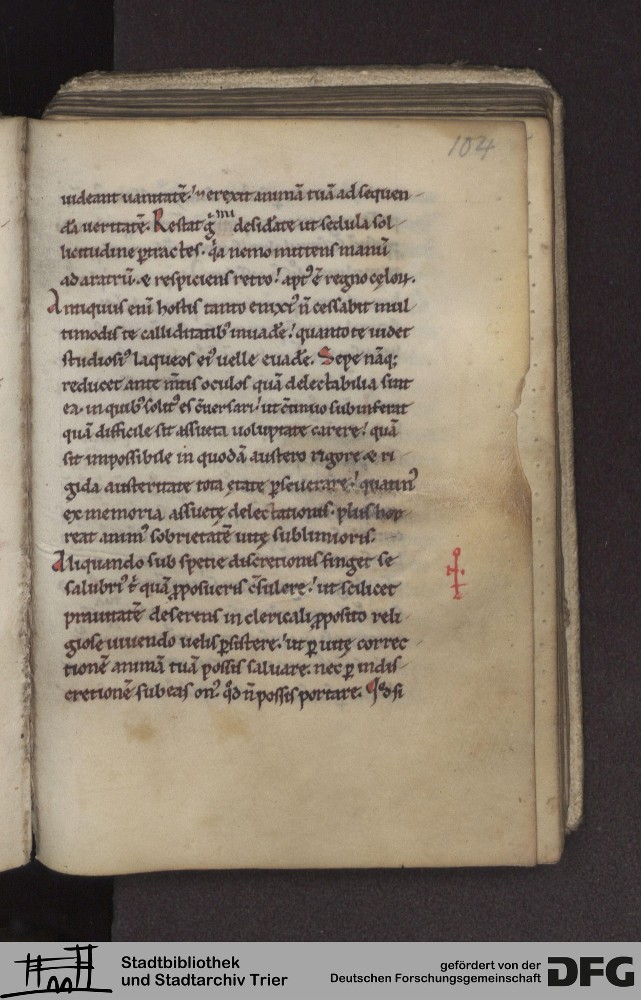 104
uideant uanitatē. erexit animā tuā ad sequen
dā ueritatē. Restat g̊ m̅i desid̅ate ut sedula sol
licitudine p̱tractes. q̇a nemo mittens manū
ad aratrū. & respiciens retro! aptꝰ ē regno cęloꝝ.
Antiquus eni̅ hostis tanto enixiꝰ n̅ cessabit mul
timodis te calliditatibꝰ inuad̅e! quanto te uidet
studiosiꝰ laqueos eiꝰ uelle euad̅e. Sepe nāq;
reducet ante m̅tis oculos quā delectabilia sint
ea. in quibꝰ solitꝰ es c̅uersari! ut c̅tinuo subinferat
quā difficile sit assueta uoluptate carere! quā
sit impossibile in quodā austero rigore & ri
gida austeritate tota ętate p̱seuerare! quatinꝰ
ex memoria assuetę delectationis. plus hor
reat animꝰ sobrietatē uitę sublimioris.
Aliquando sub spetie discretionis finget se
salubriꝰ t̅ quā p̱posueris c̅sulere! ut scilicet
prauitatē deserens in clericali p̱posito reli
giose uiuendo uelis p̱sistere! ut p̱ uitę correc
tionē animā tuā possis saluare. nec p̱ indis
cretionē subeas onꝰ. qd̅ n̅ possis portare. Qd̅ si
Stadtbibliothek
und Stadtarchiv Trier
gefördert von der
Deutschen Forschungsgemeinschaft
DFG